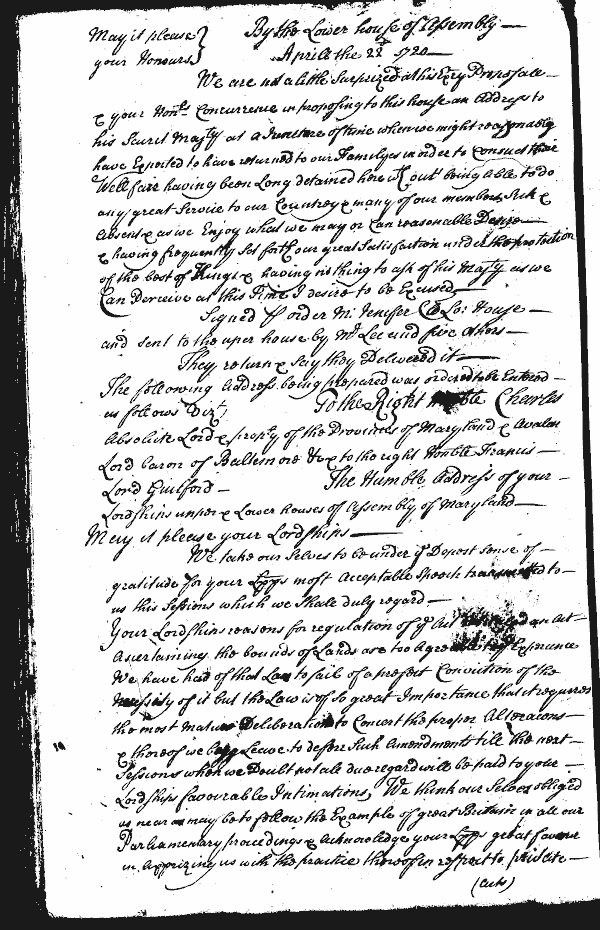 May it please } By the Lower house of Assembly —
your Honours } Aprill the 22d 1720 —
We are not a little Surprized at his Excy Proposall —
& your Honrs Concurrence in proposing to this house an Address to
his Sacred Majty at a Juncture of time when we might reasonably
have Expected to have returned to our Familyes in order to Consult their
Wellfare having been Long detained here without being Able to do
any great Service to our Countrey & many of our members Sick &
Absent & as we Enjoy what we may or Can reasonable Desire —
& having frequently Set forth our great Satisfaction under the protection
of the best of Kings & having nothing to ask of his Majty as we
Can Perceive at this Time I desire to be Excused
Signed p order M: Jenifer Cl Lo: House —
and sent to the uper house by Mr Lee and five others —
They return & Say they Delivered it —
The following Address being prepared was ordered to be Entered —
as follows Vizt; To the Right Charles
Absolute Lord & propry of the Provinces of Maryland & Avalon
Lord baron of Baltemore & & to the right Honble Francis —
Lord Guilford — The Humble Address of your —
Lordships upper & Lower houses of Assembly of Maryland —
May it please your Lordships —
We take our Selves to be under ye Depest Sense of —
gratitude for your Lopps most Acceptable Speech transmitted to —
us this Sessions which we Shale duly regard —
Your Lordships reasons for regulation of ye Act an Act —
Ascertaining the bounds of Lands are too Agreeable to ye Experience
We have had of that Law to faile of a profect Conviction of the
necessity of it but the Law is of So great Importance that it requires
the most Mature Deliberation to Concert the proper Alteracons —
& thereof we begg Leave to deferr Such Amendments till the next —
Sessions when we Doubt not ale due regard will be paid to your —
Lordships favourable Intimations, We think our Selves obliged
as near as may be to follow the Example of great Brittain in all our
Parliamentary proceedings & Acknowledge your Lopps great favour
in Apprizing us with the practice thereof in respect to private —
(acts)